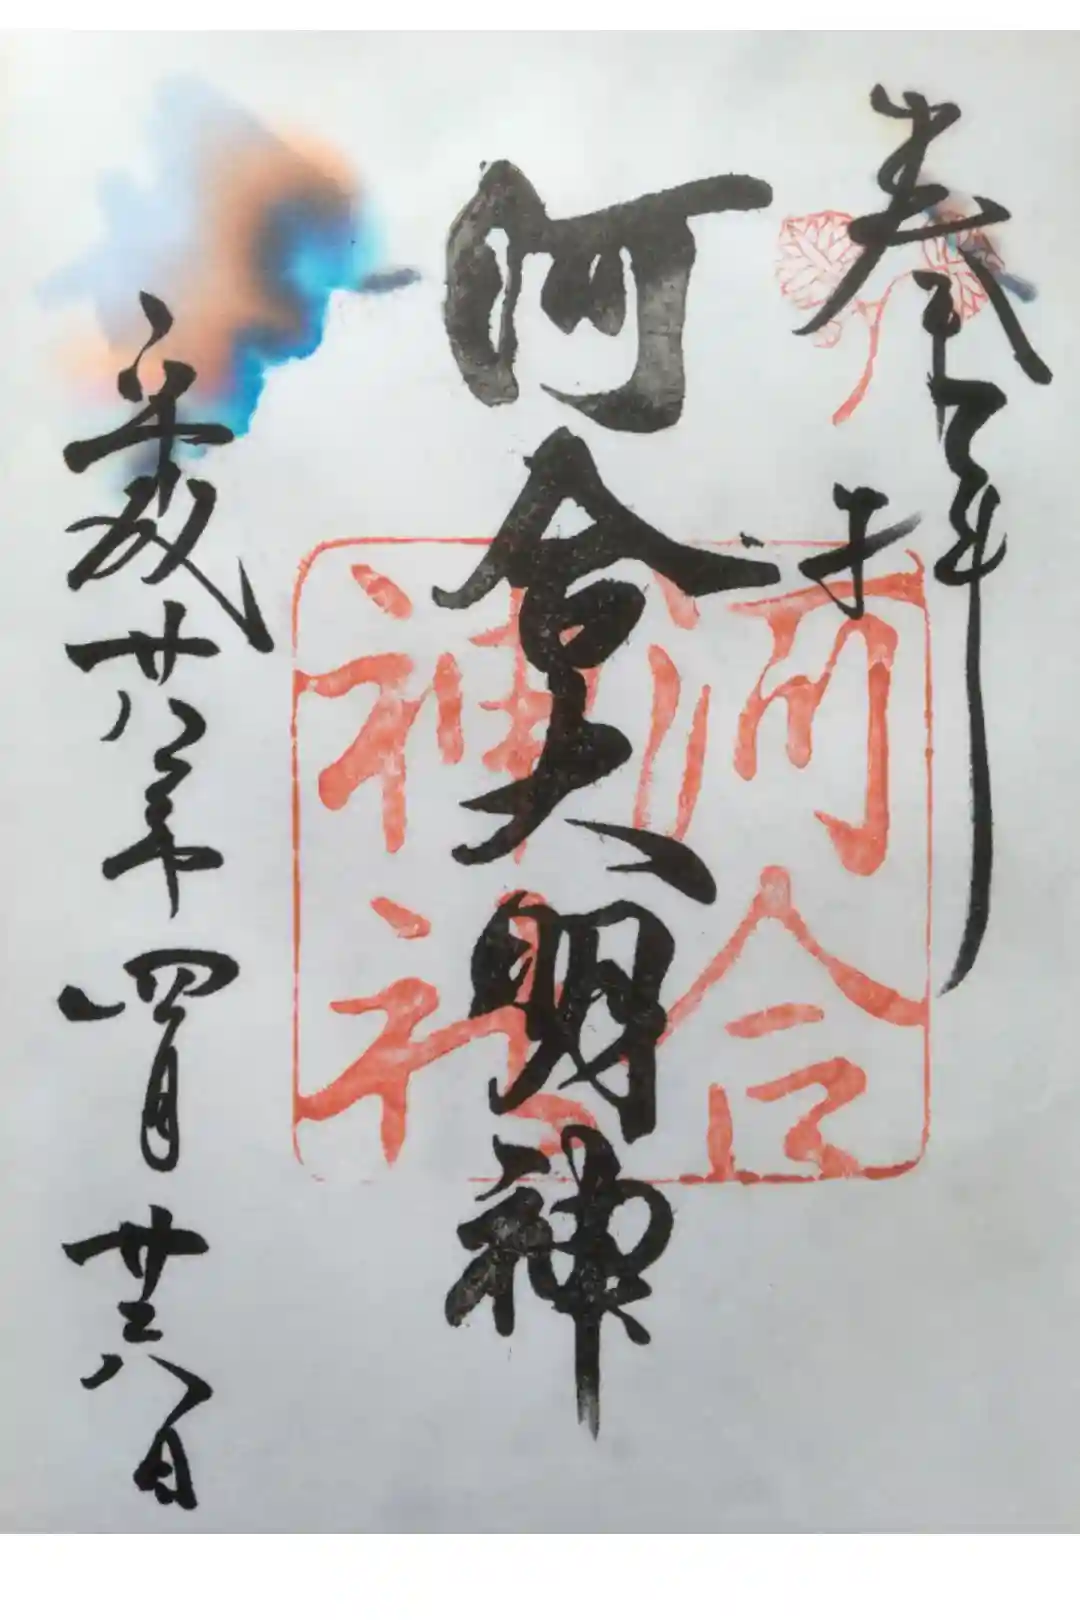 奉拝
河合大明神
河合
神社
平成廿八年四月廿六日